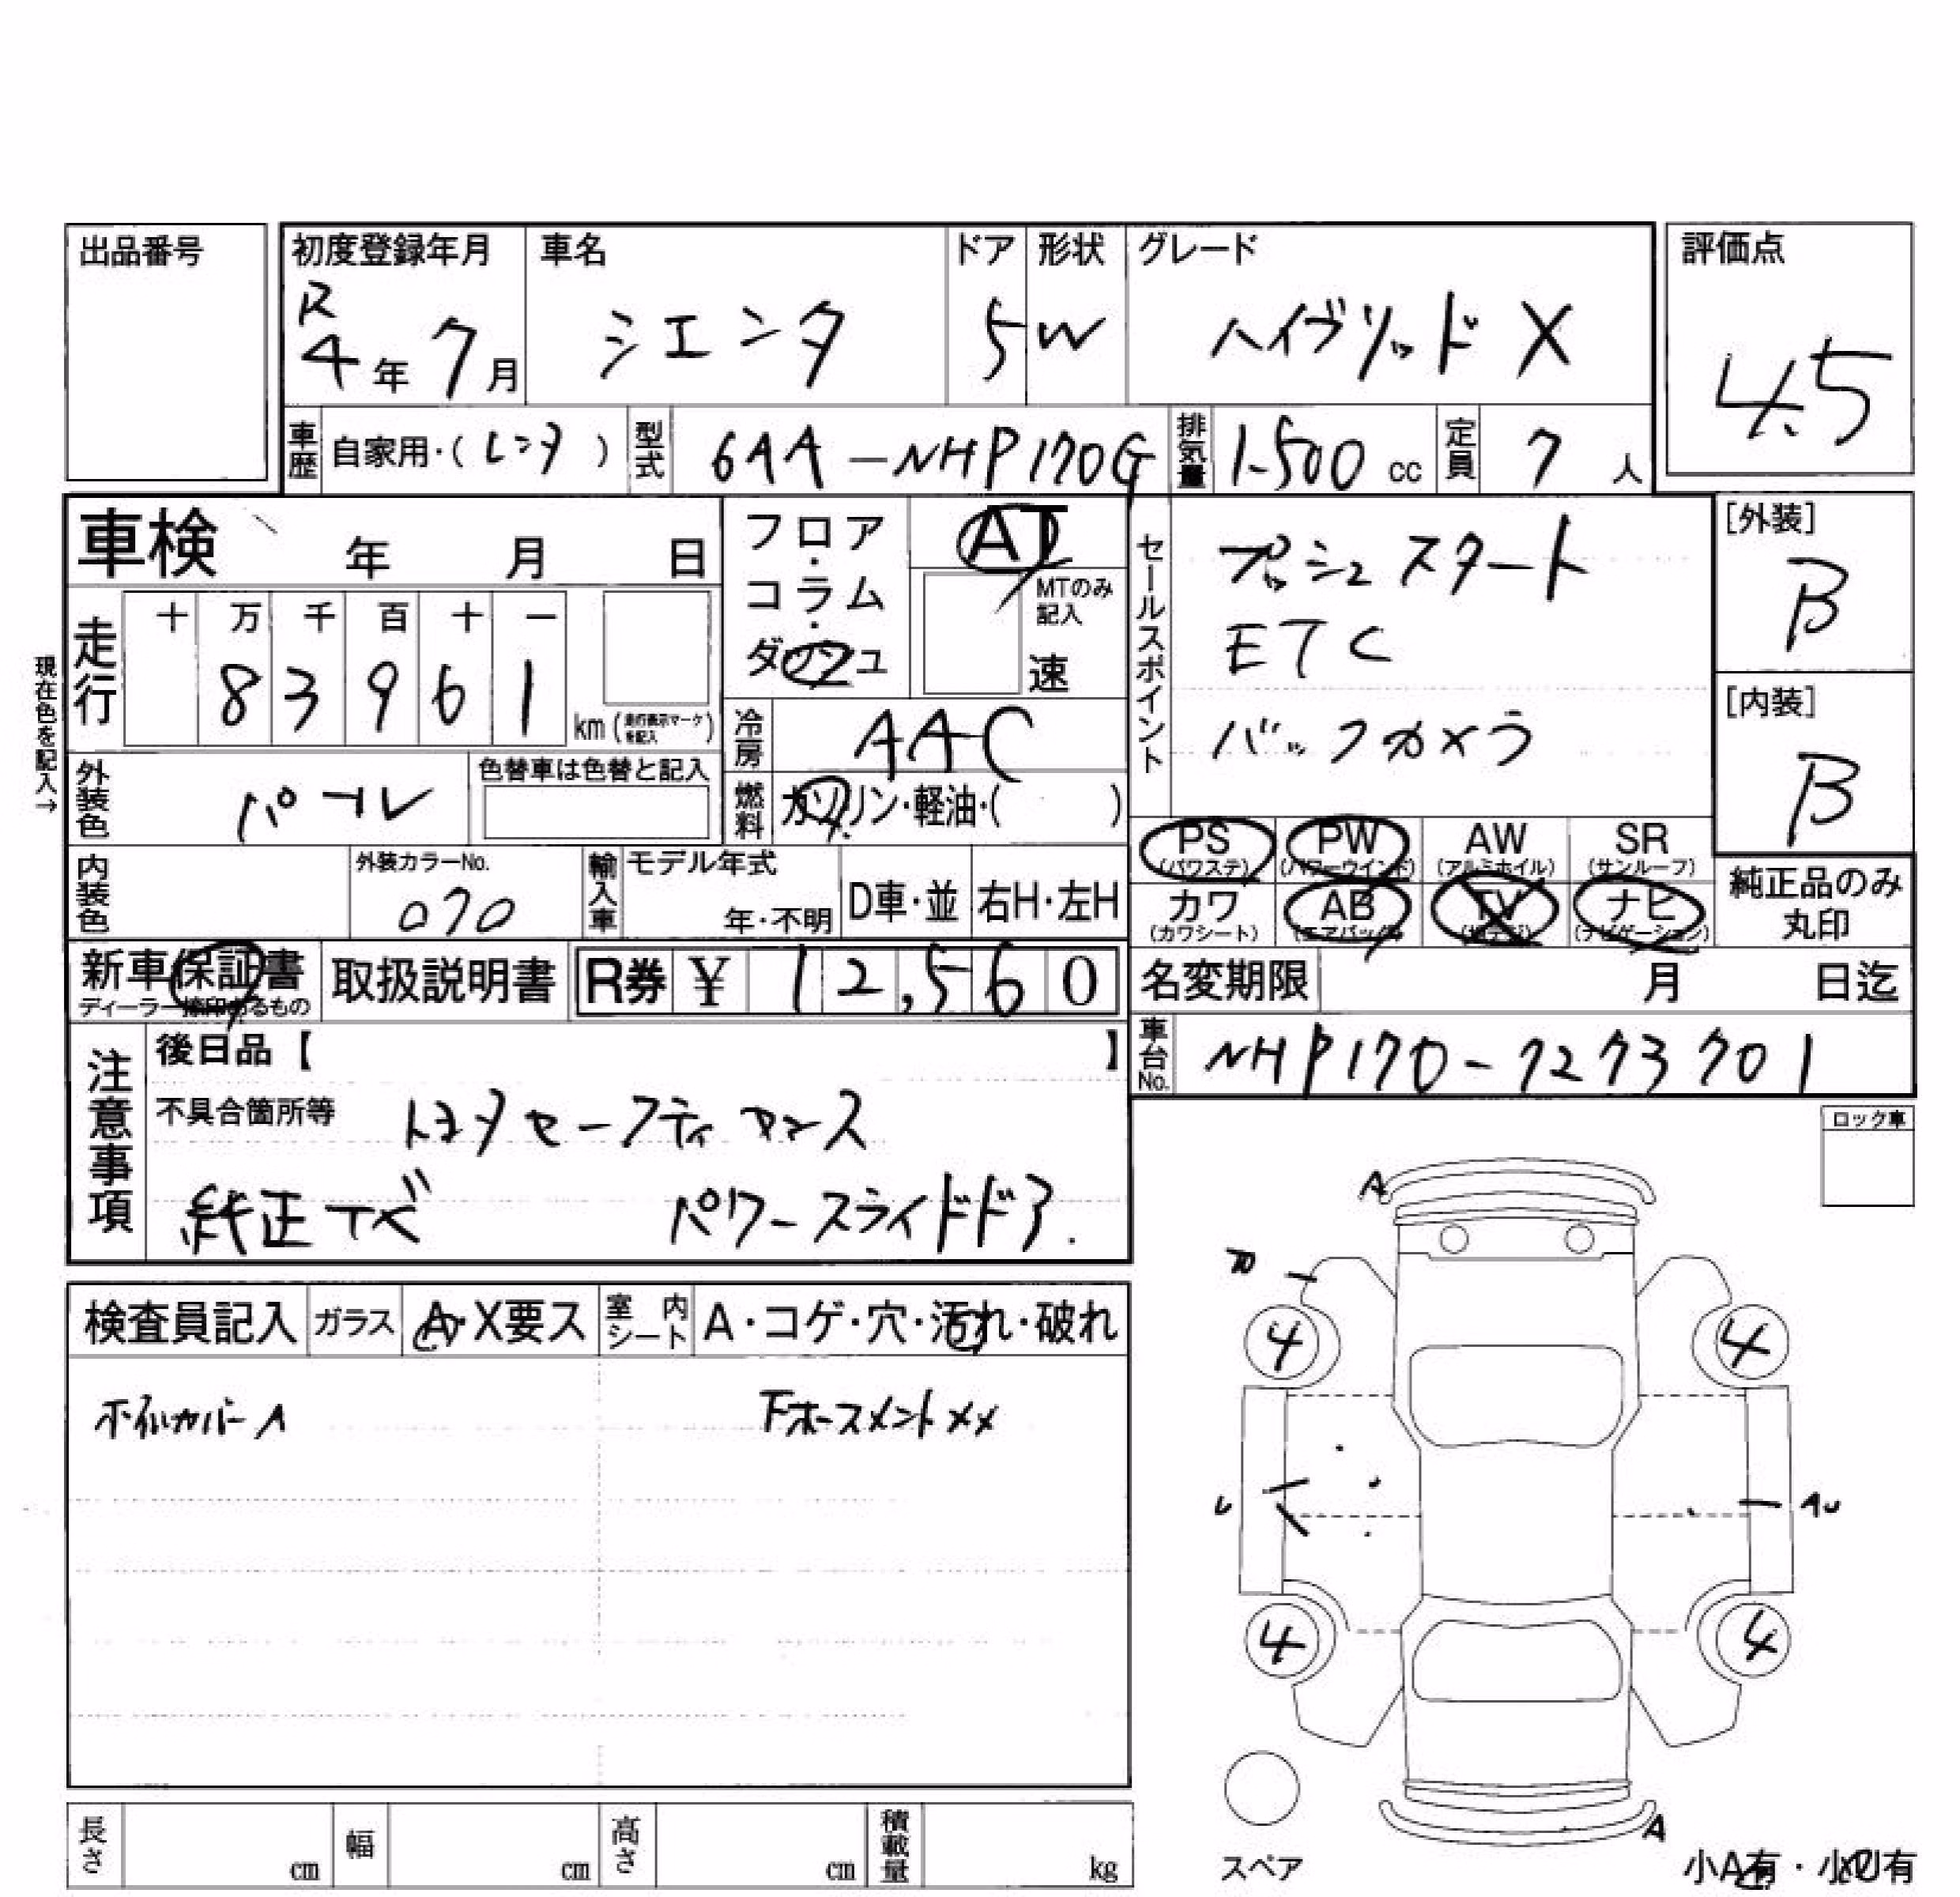 出品番号
初度登録年月 車名 ドア 形状 グレード 評価点
R
4年 7月 シエンタ 5 W ハイブリッド X 4.5
車歴 自家用・(レンタ) 型式 6AA-NHP170G 排気量 1500 cc 定員 7人
車検 年 月 日
フロア・コラム・ダッシュ AT
MTのみ記入
速
セールスポイント
プッシュスタート
ETC
バックカメラ
[外装]
B
[内装]
B
現在色を記入→
走行 十 万 千 百 十 一
8 3 9 6 1 km(走行表示マークを記入)
冷房 AAC
外装色 パール 色替車は色替と記入
燃料 ガソリン・軽油・( )
PS (パワステ) PW (パワーウインド) AW (アルミホイル) SR (サンルーフ)
カワ (カワシート) AB (エアバッグ) TV ナビ (ナビゲーション)
純正品のみ丸印
内装色 外装カラーNo. 070 輸入車 モデル年式 年・不明 D車・並 右H・左H
新車保証書 ディーラー捺印あるもの 取扱説明書 R券 ¥ 12,560
名変期限 月 日迄
車台No. NHP170-7273701
注意事項
後日品【 】
不具合箇所等 トヨタセーフティセンス
純正 パワースライドドア.
ロック車
検査員記入 ガラス A・X要ス 室内シート A・コゲ・穴・汚れ・破れ
ホイルカバーA 下ホースメントXX
A
4 4
U AU
4 4
A
スペア
小A有・小U有
長さ cm 幅 cm 高さ cm 積載量 kg